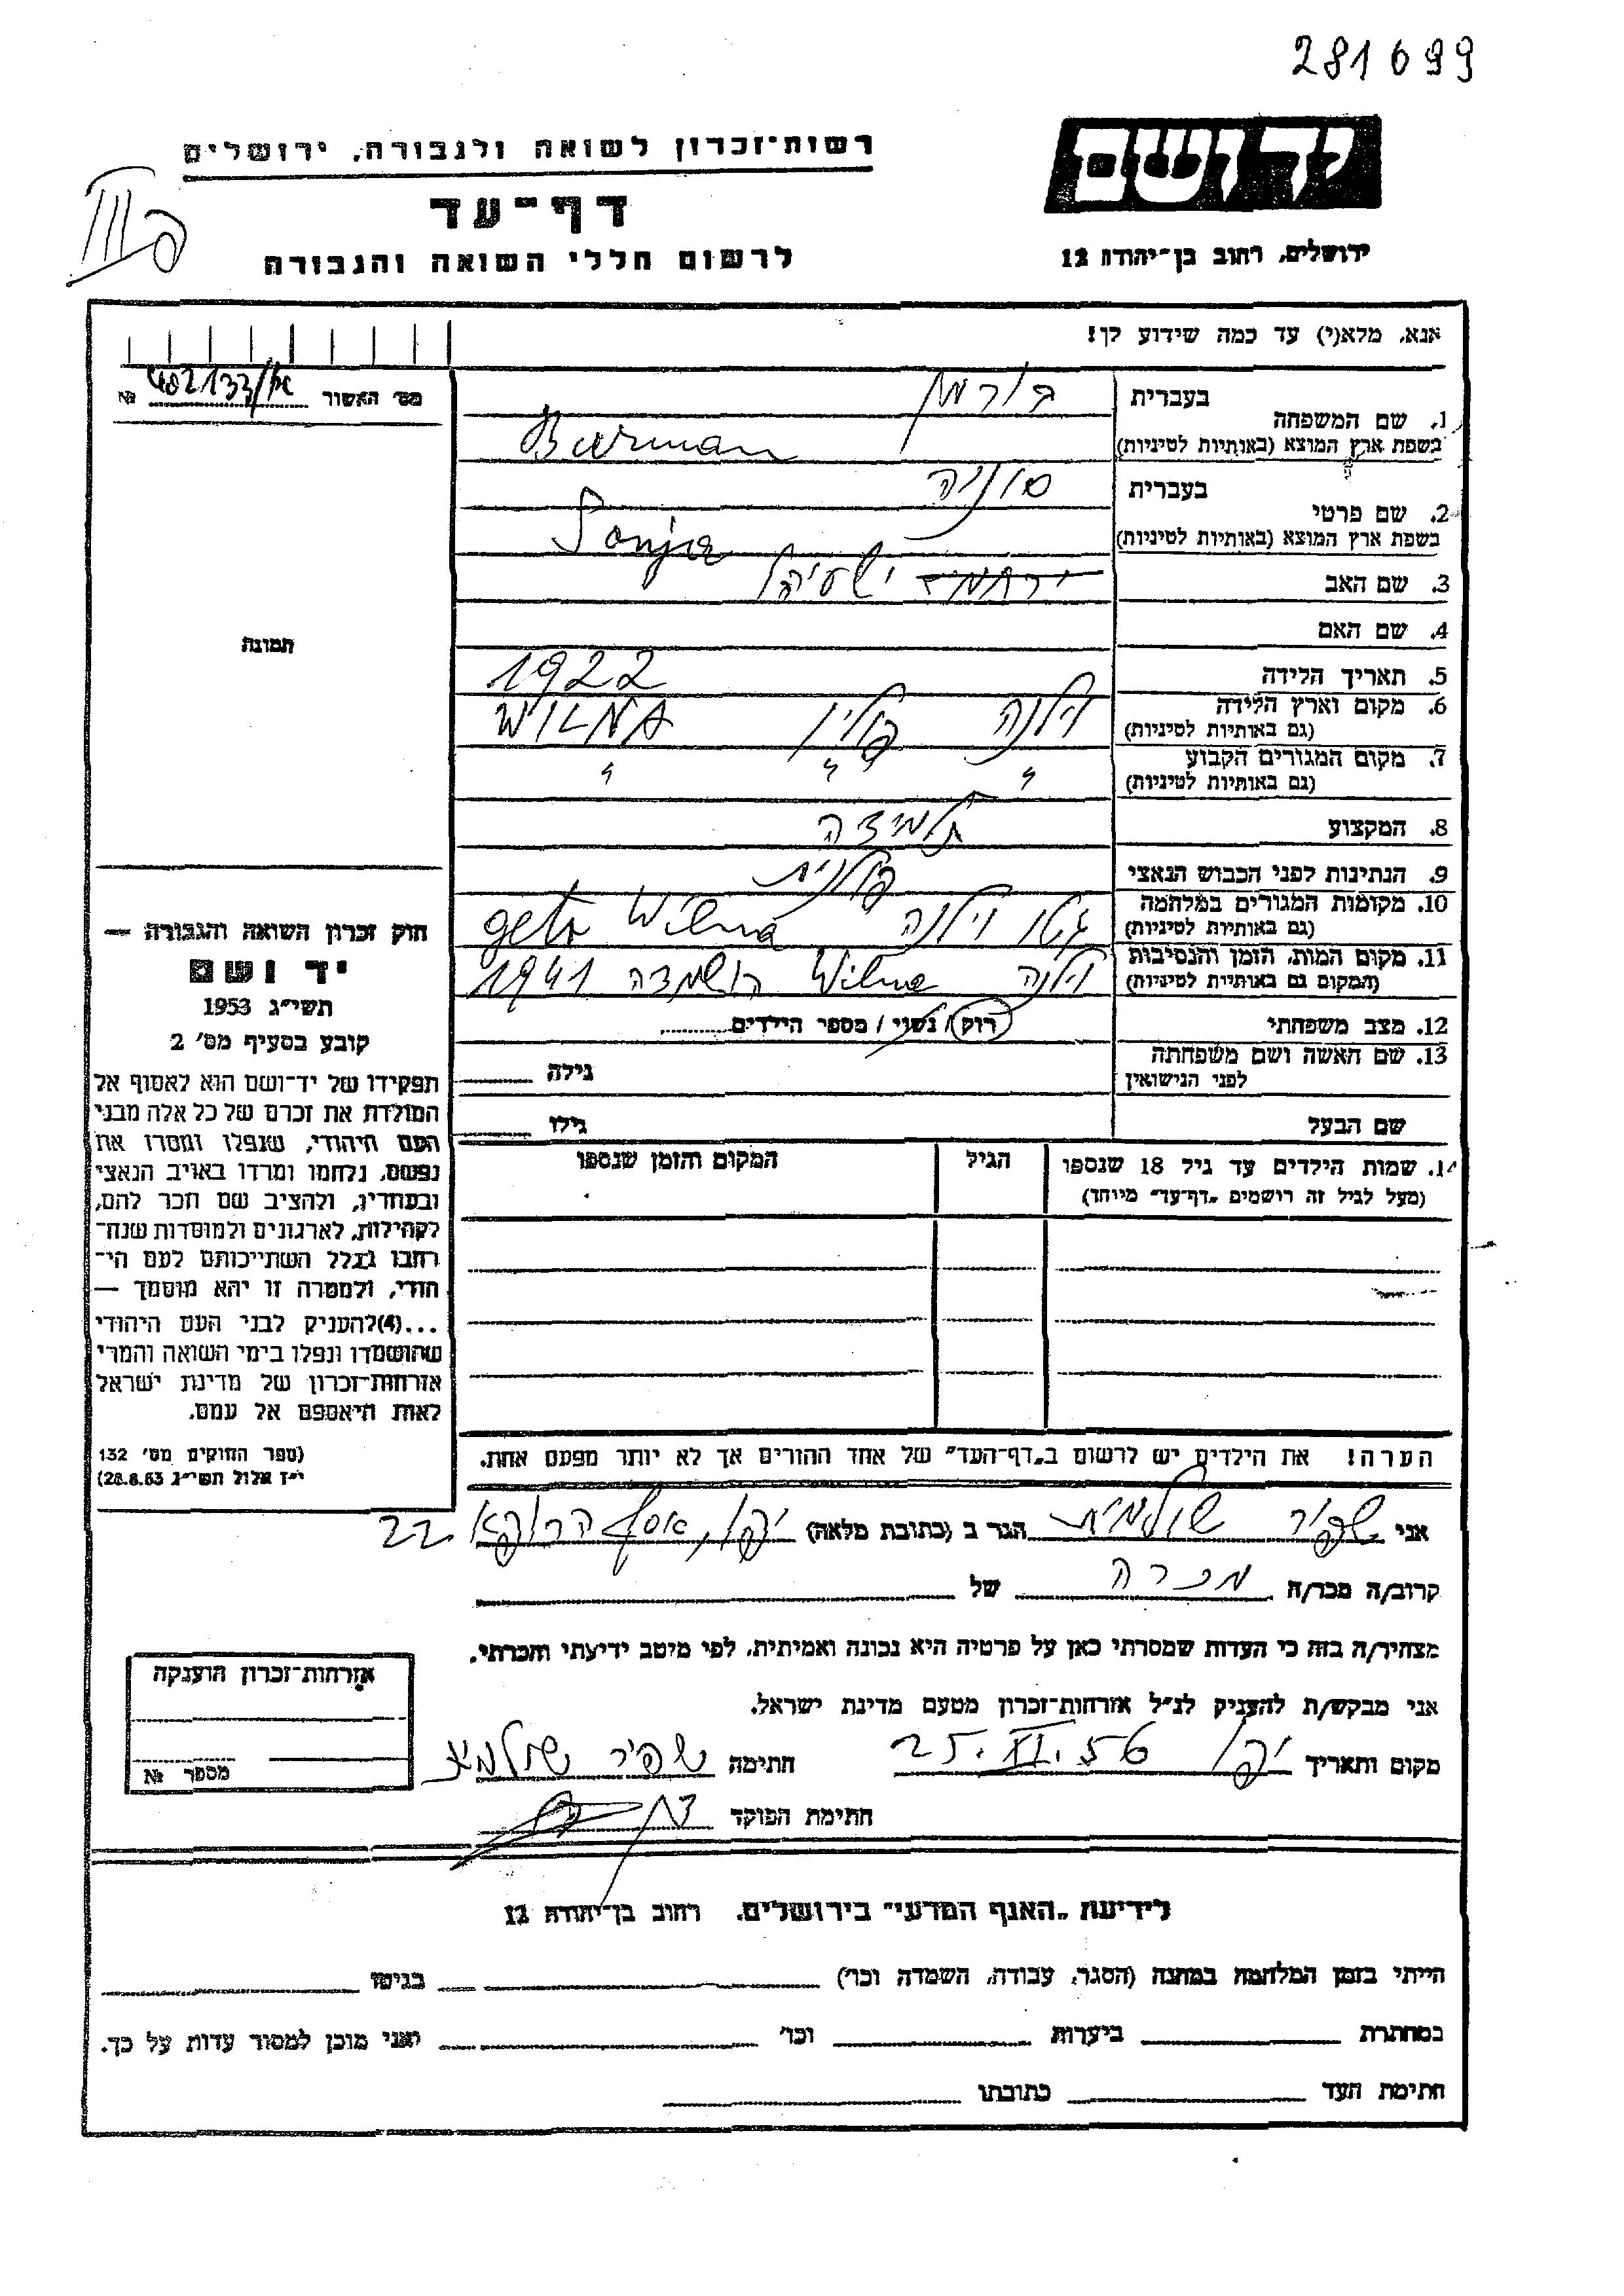 281699
רשות-זכרון לשואה ולגבורה, ירושלים
יד ושם
דף-עד
לרשום חללי השואה והגבורה
ירושלים, רחוב בן-יהודה 12
III
אנא, מלא(י) עד כמה שידוע לך!
מס' האשור № 402133/
1. שם המשפחה
בעברית בורמן
בשפת ארץ המוצא (באותיות לטיניות) Burman
2. שם פרטי
בעברית סוניה
בשפת ארץ המוצא (באותיות לטיניות) Sonja
3. שם האב ישעיהו
4. שם האם
5. תאריך הלידה 1922
6. מקום וארץ הלידה (גם באותיות לטיניות) וילנה פולין WILNA
7. מקום המגורים הקבוע (גם באותיות לטיניות) " " "
8. המקצוע תלמידה
9. הנתינות לפני הכבוש הנאצי פולנית
10. מקומות המגורים במלחמה (גם באותיות לטיניות) גטו וילנה geto Wilna
11. מקום המות, הזמן והנסיבות (המקום גם באותיות לטיניות) וילנה Wilna הושמדה 1941
12. מצב משפחתי רוק / נשוי / מספר הילדים
13. שם האשה ושם משפחתה לפני הנישואין גילה
שם הבעל גילו
14. שמות הילדים עד גיל 18 שנספו הגיל המקום והזמן שנספו
(מעל לגיל זה רושמים "דף-עד" מיוחד)
תמונה
חוק זכרון השואה והגבורה —
יד ושם
תשי"ג 1953
קובע בסעיף מס' 2
תפקידו של יד-ושם הוא לאסוף אל
המולדת את זכרם של כל אלה מבני
העם היהודי, שנפלו ומסרו את
נפשם, נלחמו ומרדו באויב הנאצי
ובעוזריו, ולהציב שם וזכר להם,
לקהילות, לארגונים ולמוסדות שנח-
רבו בגלל השתייכותם לעם הי-
הודי, ולמטרה זו יהא מוסמך —
...(4) להעניק לבני העם היהודי
שהושמדו ונפלו בימי השואה והמרי
אזרחות-זכרון של מדינת ישראל
לאות היאספם אל עמם.
(ספר החוקים מס' 132
י"ז אלול תשי"ג 28.8.53)
הערה! את הילדים יש לרשום ב"דף-העד" של אחד ההורים אך לא יותר מפעם אחת.
אני שפיר שולמית הגר ב (כתובת מלאה) יפו, אסף הרופא 22
קרוב/ה מכר/ה מכרה של
מצהיר/ה בזה כי העדות שמסרתי כאן על פרטיה היא נכונה ואמיתית, לפי מיטב ידיעתי והכרתי.
אני מבקש/ת להעניק לנ"ל אזרחות-זכרון מטעם מדינת ישראל.
מקום ותאריך יפו 25.XI.56 חתימה שפיר שולמית
חתימת הפוקד
אזרחות-זכרון הוענקה
מספר №
לידיעת "האגף המדעי" בירושלים, רחוב בן-יהודה 12
הייתי בזמן המלחמה במחנה (הסגר, עבודה, השמדה וכו') בגיטו
במחתרת ביערות וכו' ואני מוכן למסור עדות על כך.
חתימת העד כתובתו